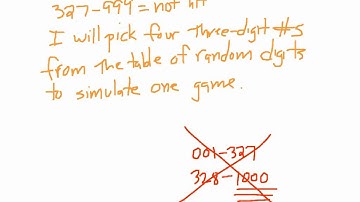 327-999 = not hit
I will pick four three-digit #s
from the table of random digits
to simulate one game.
001-327
328-1000